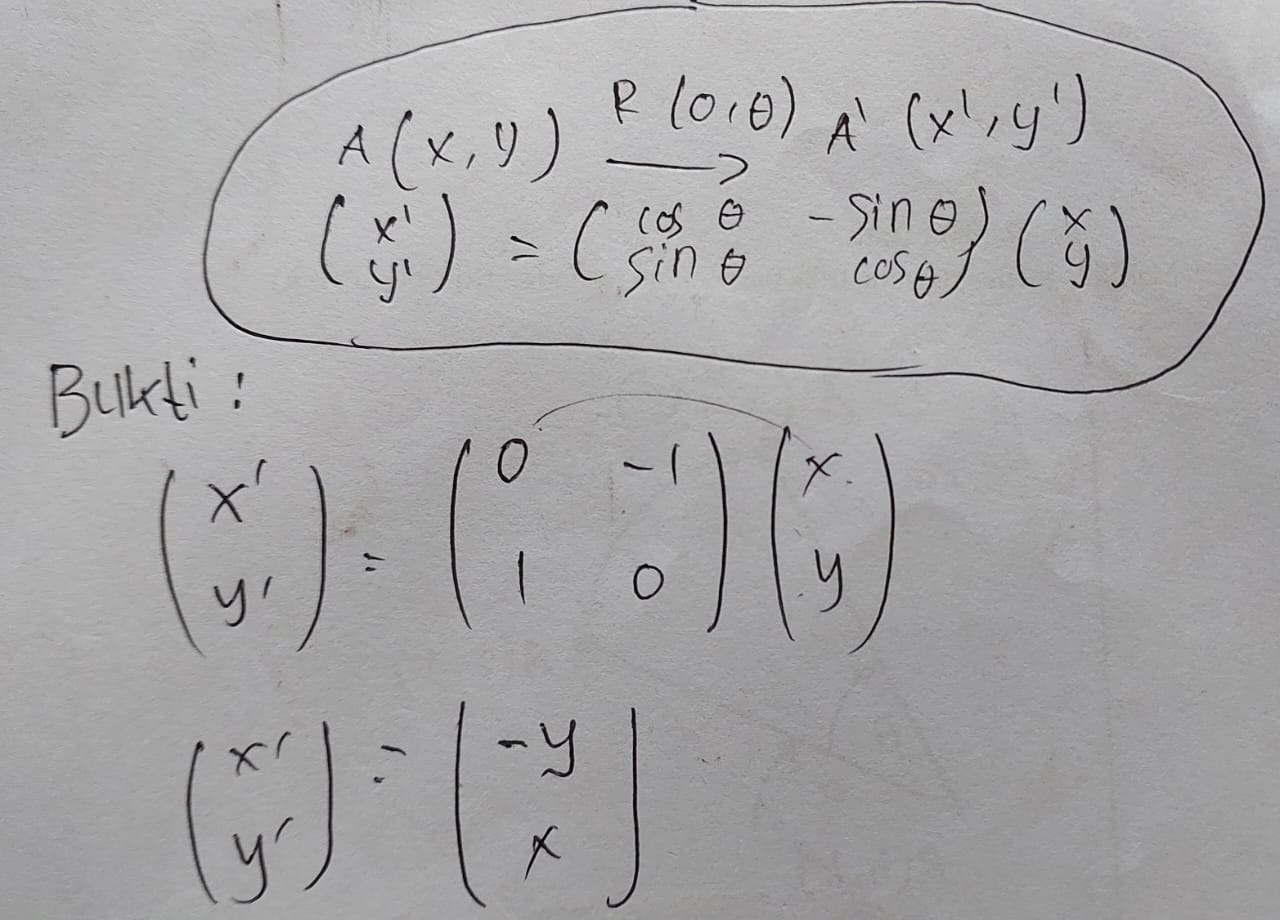 A(x, y) R(0,θ) → A'(x', y')
(x' y') = (cos θ -sin θ sin θ cos θ) (x y)
Bukti :
(x' y') = (0 -1 1 0) (x y)
(x' y') = (-y x)